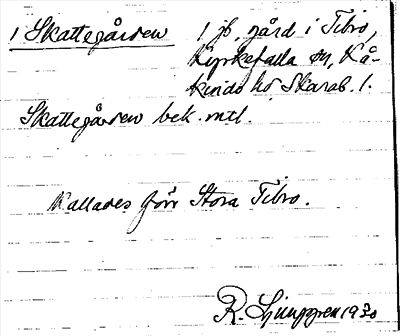 1 Skattegården 1 jb. gård i Tibro,
Kyrkefalla sn, Kå-
kinds hd, Skarab. l.
Skattegården bek. mtl.
Kallades förr Stora Tibro.
R. Ljunggren 1930